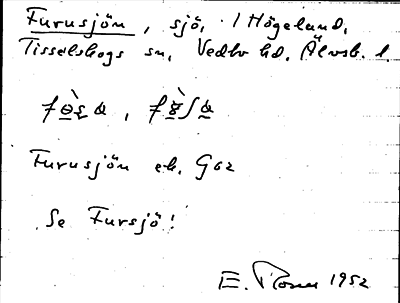 Furusjön, sjö, i Högelund,
Tisselskogs sn, Vedbo hd. Älvsb. l.
Furusjön ek. Gaz
Se Fursjö!
E. 1952